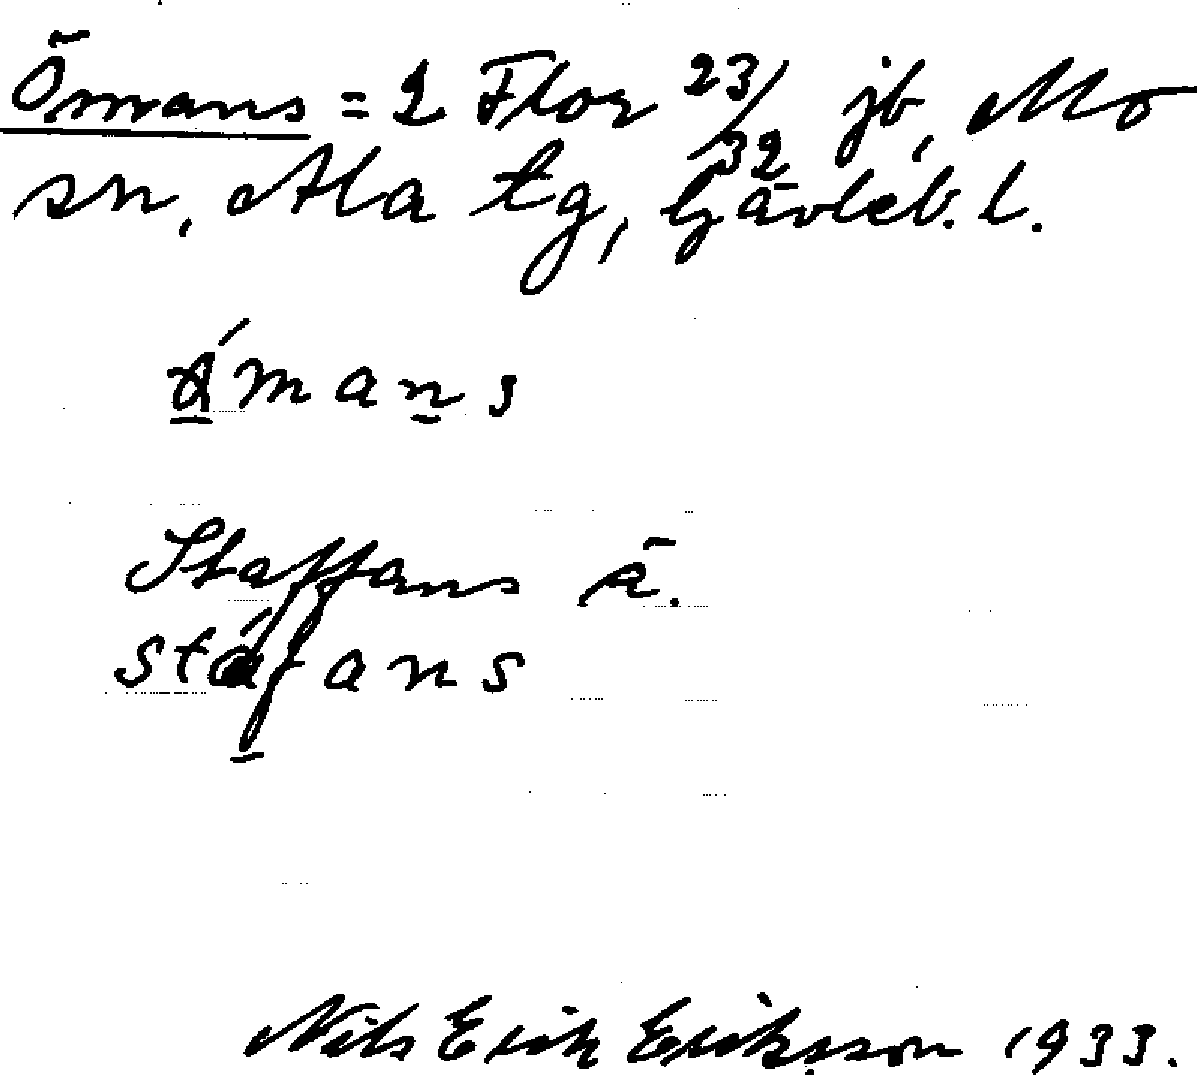 Ömans = 2 Flor 23/32 jb, Mo
sn, Ala tg, Gävleb. l.
mans
Staffans ä.
stáfans
Nils Erik Eriksson 1933.